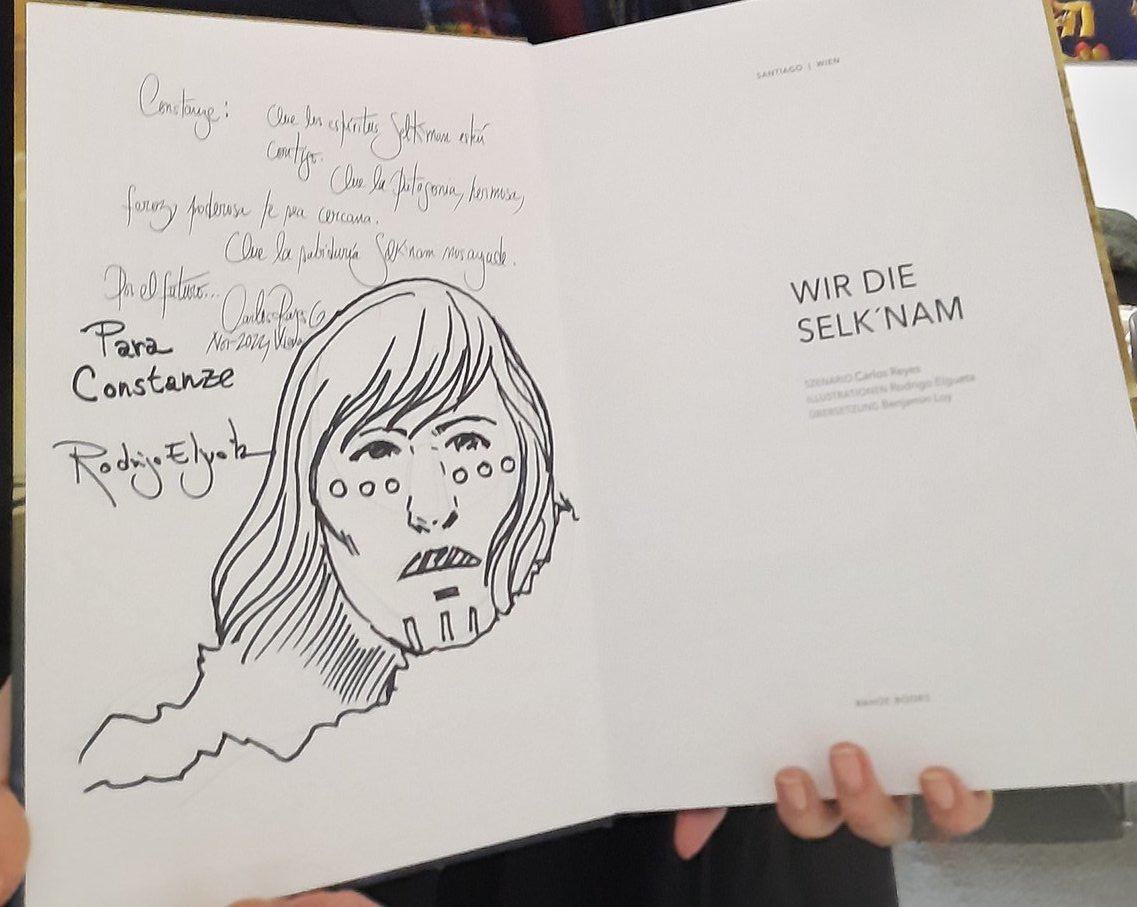 Constanze: Que los espíritus Selknam estén
contigo.
Que la Patagonia, hermosa,
feroz, poderosa te sea cercana.
Que la sabiduría Selknam nos ayude.
Por el futuro...
Carlos Reyes G
Nov-2022, Viena
Para
Constanze
Rodrigo Elgueta
SANTIAGO | WIEN
WIR DIE
SELK´NAM
SZENARIO Carlos Reyes
ILLUSTRATIONEN Rodrigo Elgueta
ÜBERSETZUNG Benjamin Loy
BAHOE BOOKS